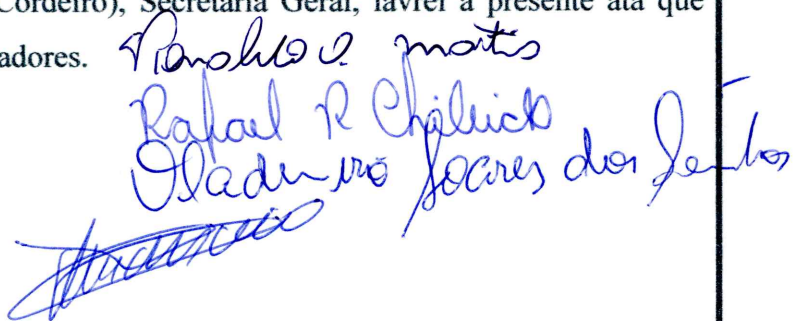 Cordeiro), Secretária Geral, lavrei a presente ata que
adores. Ronaldo O. Martins
Rafael R
Vlademiro Soares dos Santos